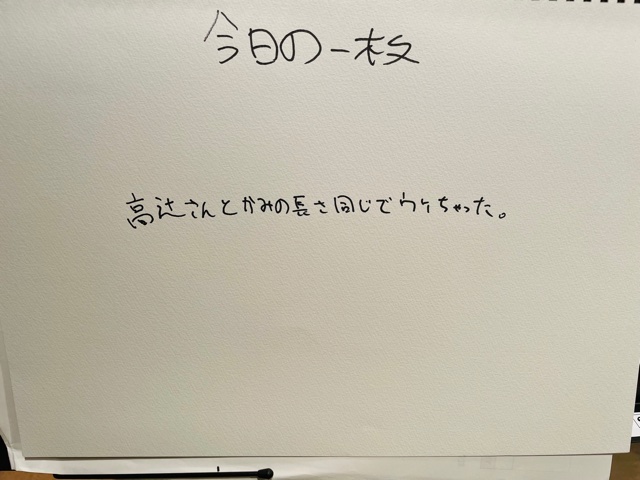 今日の一枚
高辻さんとかみの長さ同じでウケちゃった。